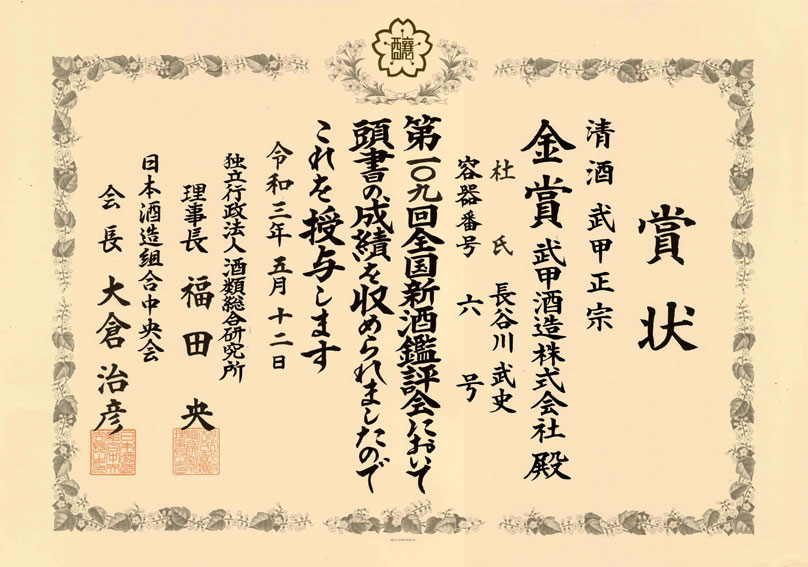 釀
賞状
清酒 武甲正宗
金賞 武甲酒造株式会社 殿
杜氏 長谷川 武史
容器番号 六 号
第一〇九回全国新酒鑑評会において
頭書の成績を収められましたので
これを授与します
令和三年五月十二日
独立行政法人酒類総合研究所
理事長 福田 央
日本酒造組合中央会
会長 大倉 治彦